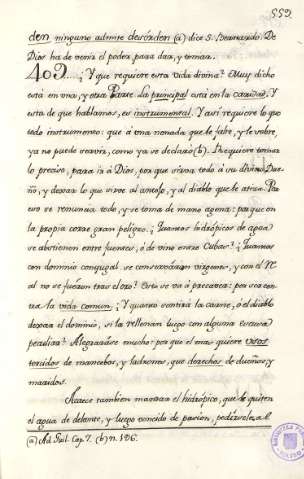 559.
den ninguno admite desórden (a) dice S. Bernardo. De
Dios ha de venir el poder, para dar, y tomar.
409.... ¿Y que requiere esta vida divina? Muy dicho
está en una, y otra Parte. La principal está en la caridad. Y
esta de que hablamos, es instrumental. Y asi requiere lo que
todo instrumento: que á una nonada que le falte, y le sobre,
ya no puede servir, como ya se declaró (b). Requiere tomar
lo preciso, para ir á Dios, por que sirva todo á su divino Due-
ño, y dexar lo que sirve al antojo, y al diablo que le atiza. Pa
eso se renuncia todo, y se toma de mano agena: por que en
la propia corre gran peligro. ¿Quantos hidrópicos de agua
se abstienen entre fuentes, ó de vino entre Cubas? ¿Quantos
con dominio conyugal se conservarán vírgenes, y con el
al no se fueran tras el oro? Esto se vá á precaver: por eso en-
tra la vida comun; ¿Y quanto sentirá la carne, ó el diablo
dexar el dominio, si la rellenan luego con alguna
peculiar? Alegraráse mucho: por que el mas quiere usos
torcidos de mancebos, y ladrones, que derechos de dueños, y
maridos.
Suele tambien mandar el hidrópico, que le quiten
el agua de delante, y luego vencido de pasion, pedírsela al
(a) Ad. Guil. Cap. 7. (b) n. 196.